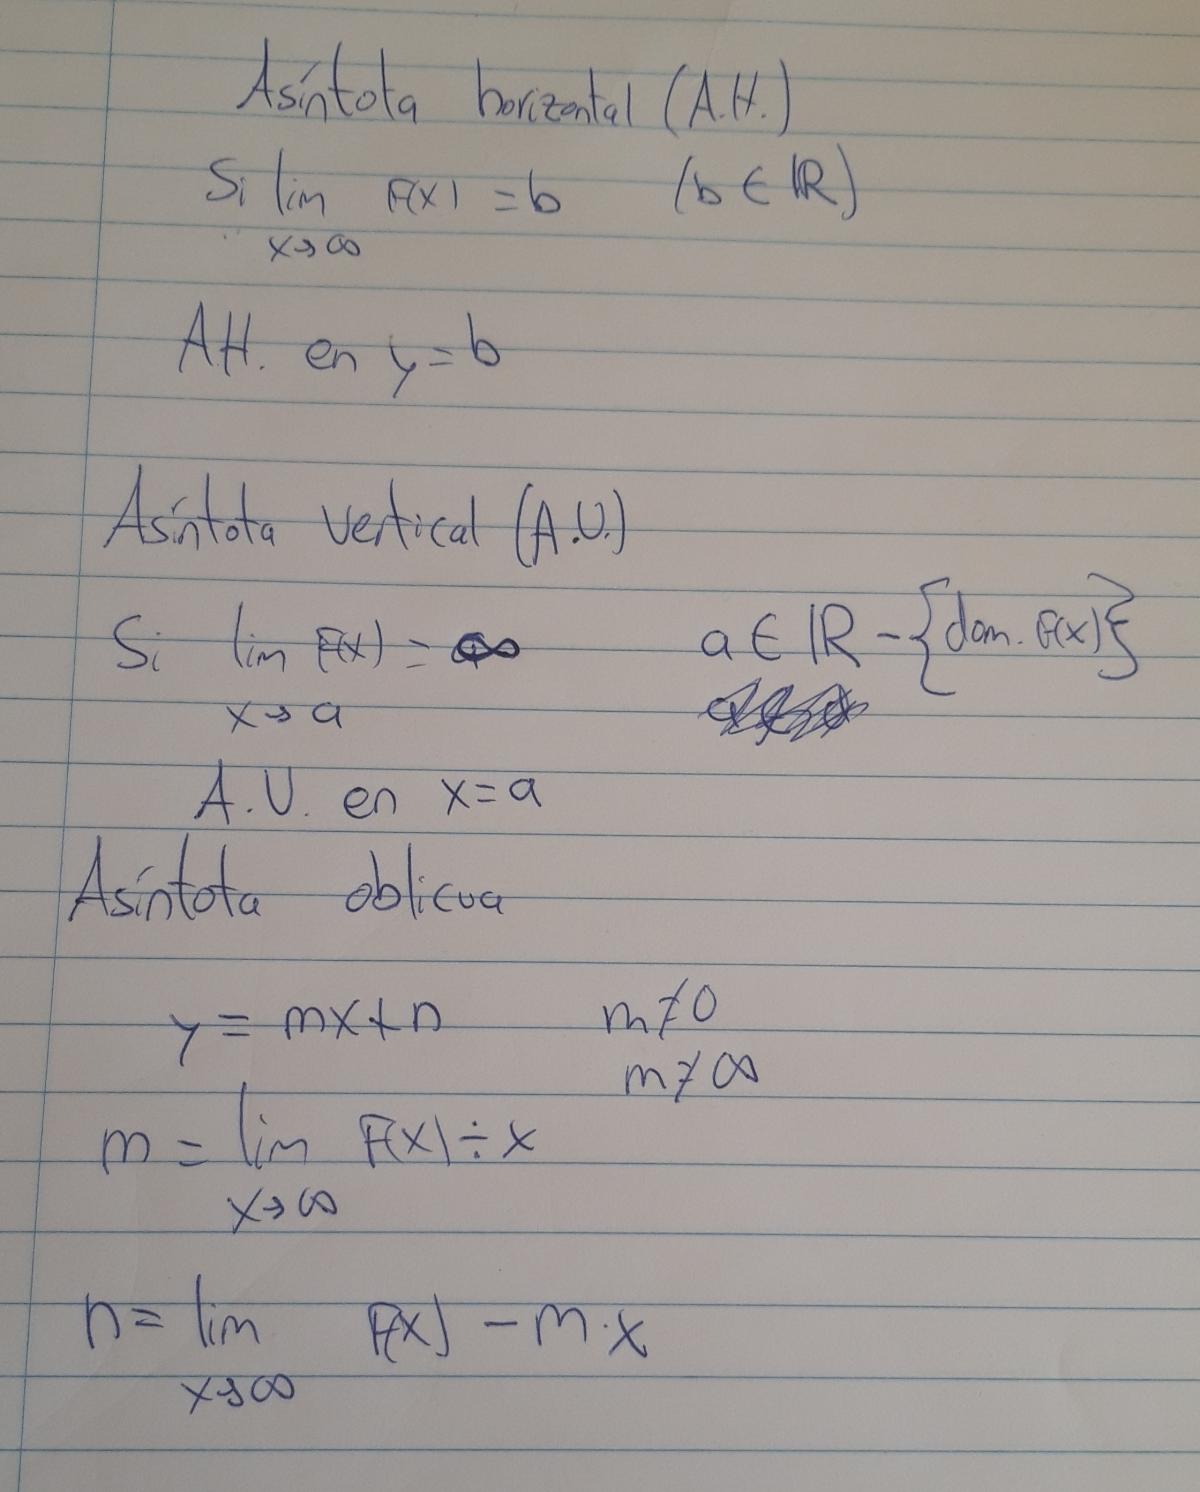 Asíntota horizontal (A.H.)
Si lim F(x) = b (b ∈ ℝ)
x→∞
A.H. en y=b
Asíntota vertical (A.V.)
Si lim F(x) = ∞ a ∈ ℝ - {dom. F(x)}
x→a
A.V. en x=a
Asíntota oblicua
y = mx+n m≠0
m≠∞
m = lim F(x) ÷ x
x→∞
n = lim F(x) - m·x
x→∞